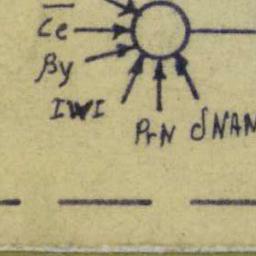 Ce
βy
IWI
PrN dNAN